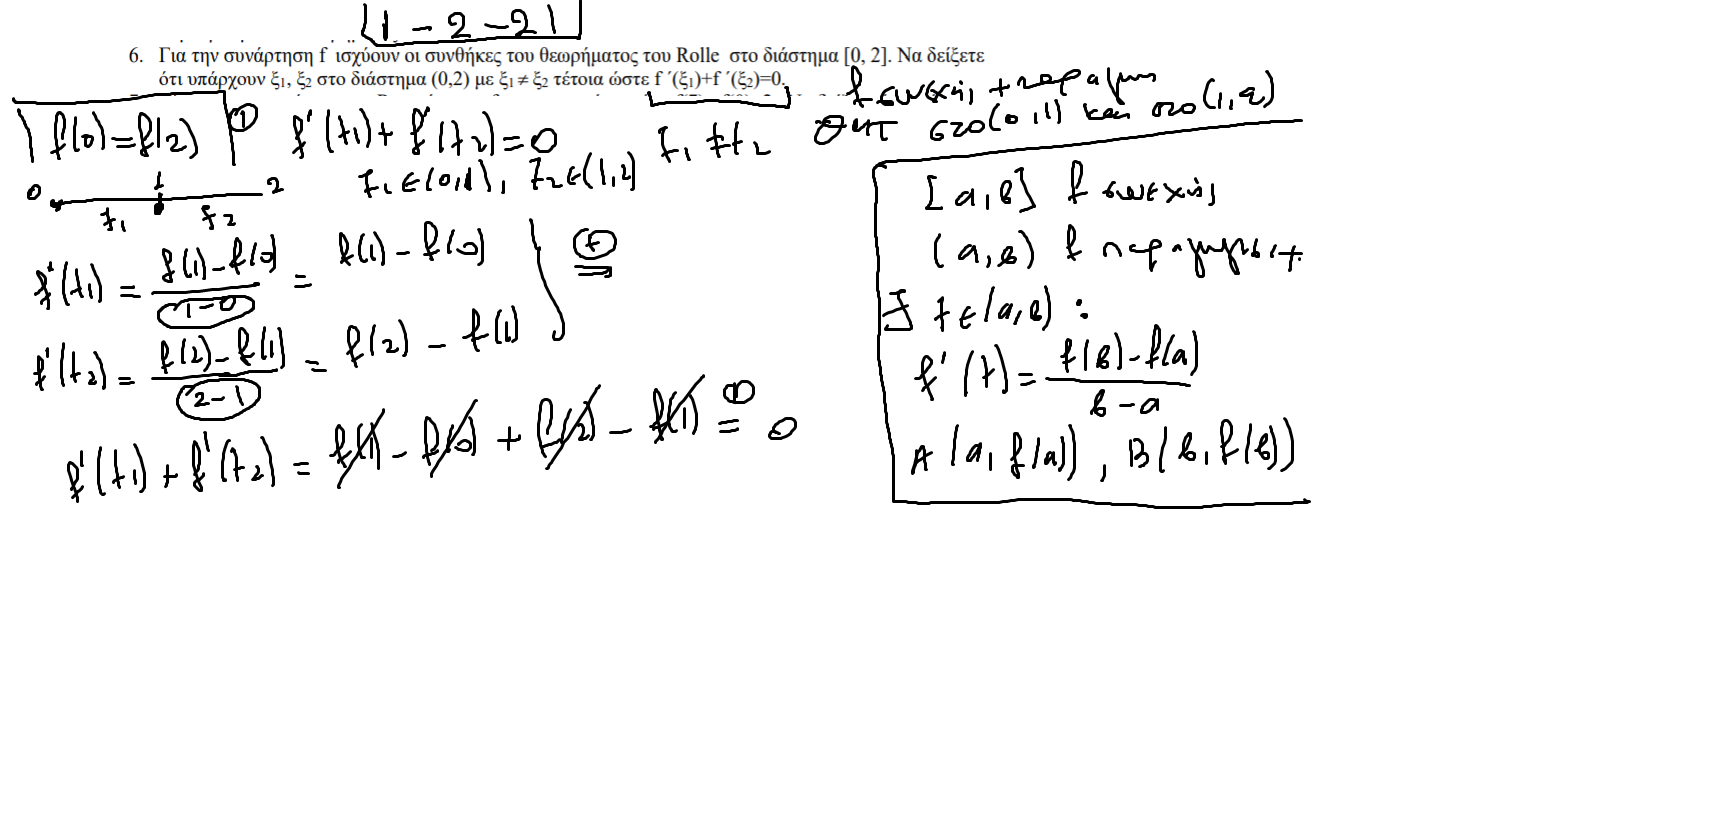 1 - 2 - 21
6. Για την συνάρτηση f ισχύουν οι συνθήκες του θεωρήματος του Rolle στο διάστημα [0, 2]. Να δείξετε
ότι υπάρχουν ξ1, ξ2 στο διάστημα (0,2) με ξ1 ≠ ξ2 τέτοια ώστε f ΄(ξ1)+f ΄(ξ2)=0.
f συνεχής + παραγωγ
ΘΜΤ στο (0,1) και στο (1,2)
f(0)=f(2) ①
f'(ξ1)+f'(ξ2)=0
ξ1≠ξ2
ξ1∈(0,1), ξ2∈(1,2)
0 1 2
ξ1 ξ2
f'(ξ1) = (f(1)-f(0))/(1-0) = f(1)-f(0)
(+)
f'(ξ2) = (f(2)-f(1))/(2-1) = f(2) - f(1)
f'(ξ1)+f'(ξ2) = f(1) - f(0) + f(2) - f(1) =① 0
[α,β] f συνεχής
(α,β) f
∃ ξ∈(α,β) :
f'(ξ) = (f(β)-f(α))/(β-α)
A(α, f(α)), B(β, f(β))